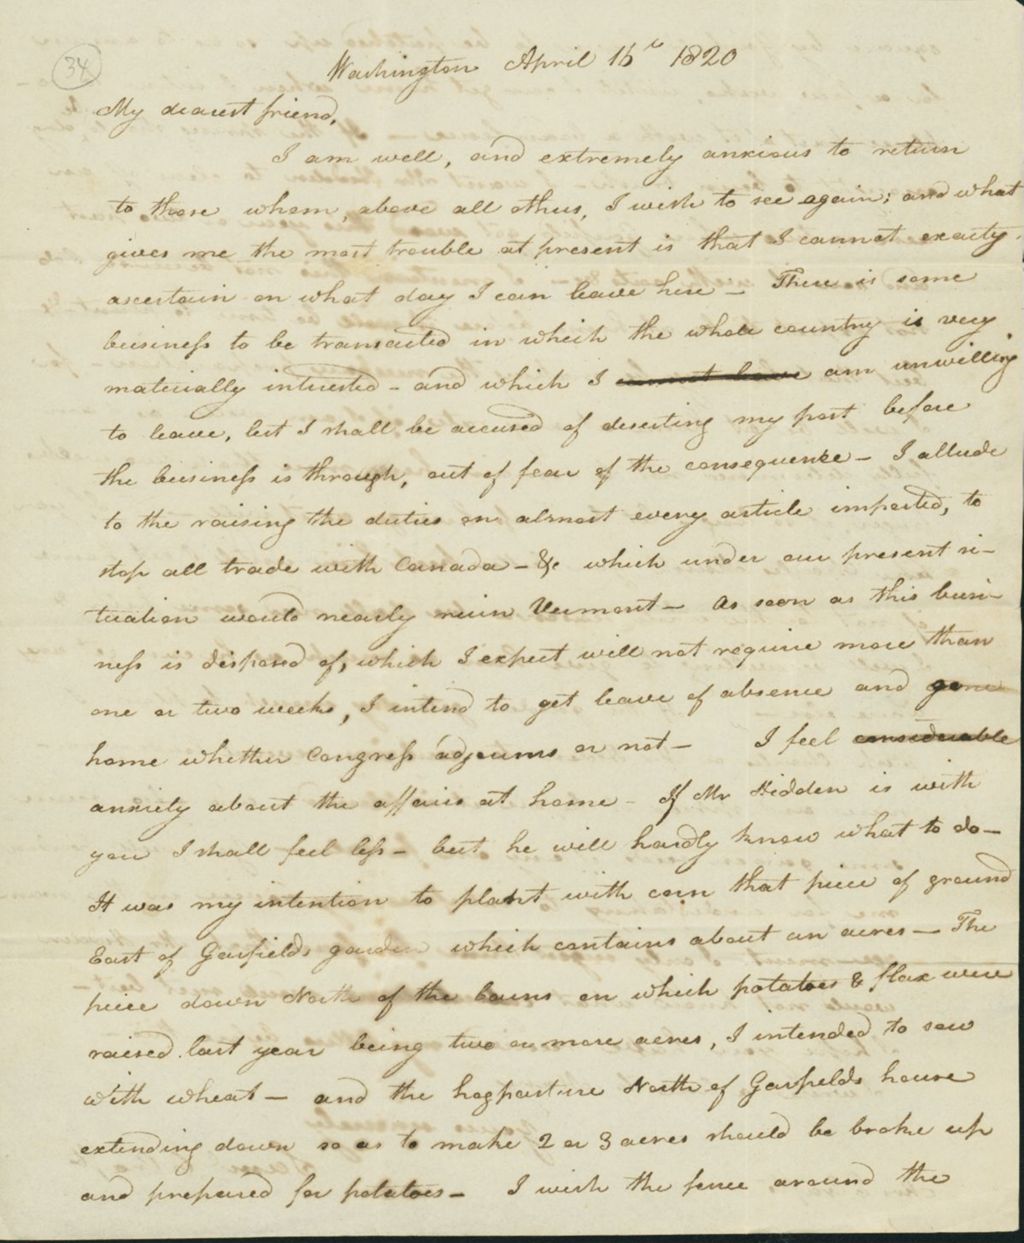 34
Washington April 16th 1820
My dearest friend,
I am well, and extremely anxious to return
to those whom, above all others, I wish to see again; and what
gives me the most trouble at present is that I cannot exactly
ascertain on what day I can leave here — There is some
business to be transacted in which the whole country is very
materially interested — and which I cannot leave am unwilling
to leave, lest I shall be accused of deserting my post before
the business is through, out of fear of the consequence — I allude
to the raising the duties on almost every article imported, to
stop all trade with Canada — & which under our present si-
tuation would nearly ruin Vermont — As soon as this busi-
ness is disposed of, which I expect will not require more than
one or two weeks, I intend to get leave of absence and gone
home whether Congress adjourns or not — I feel considerable
anxiety about the affairs at home — If Mr Hidden is with
you I shall feel less — but he will hardly know what to do —
It was my intention to plant with corn that piece of ground
East of Garfields garden which contains about an acres — The
piece down North of the barns on which potatoes & flax were
raised last year being two or more acres, I intended to sow
with wheat — and the hogpasture North of Garfields house
extending down so as to make 2 or 3 acres should be broke up
and prepared for potatoes — I wish the fence around the